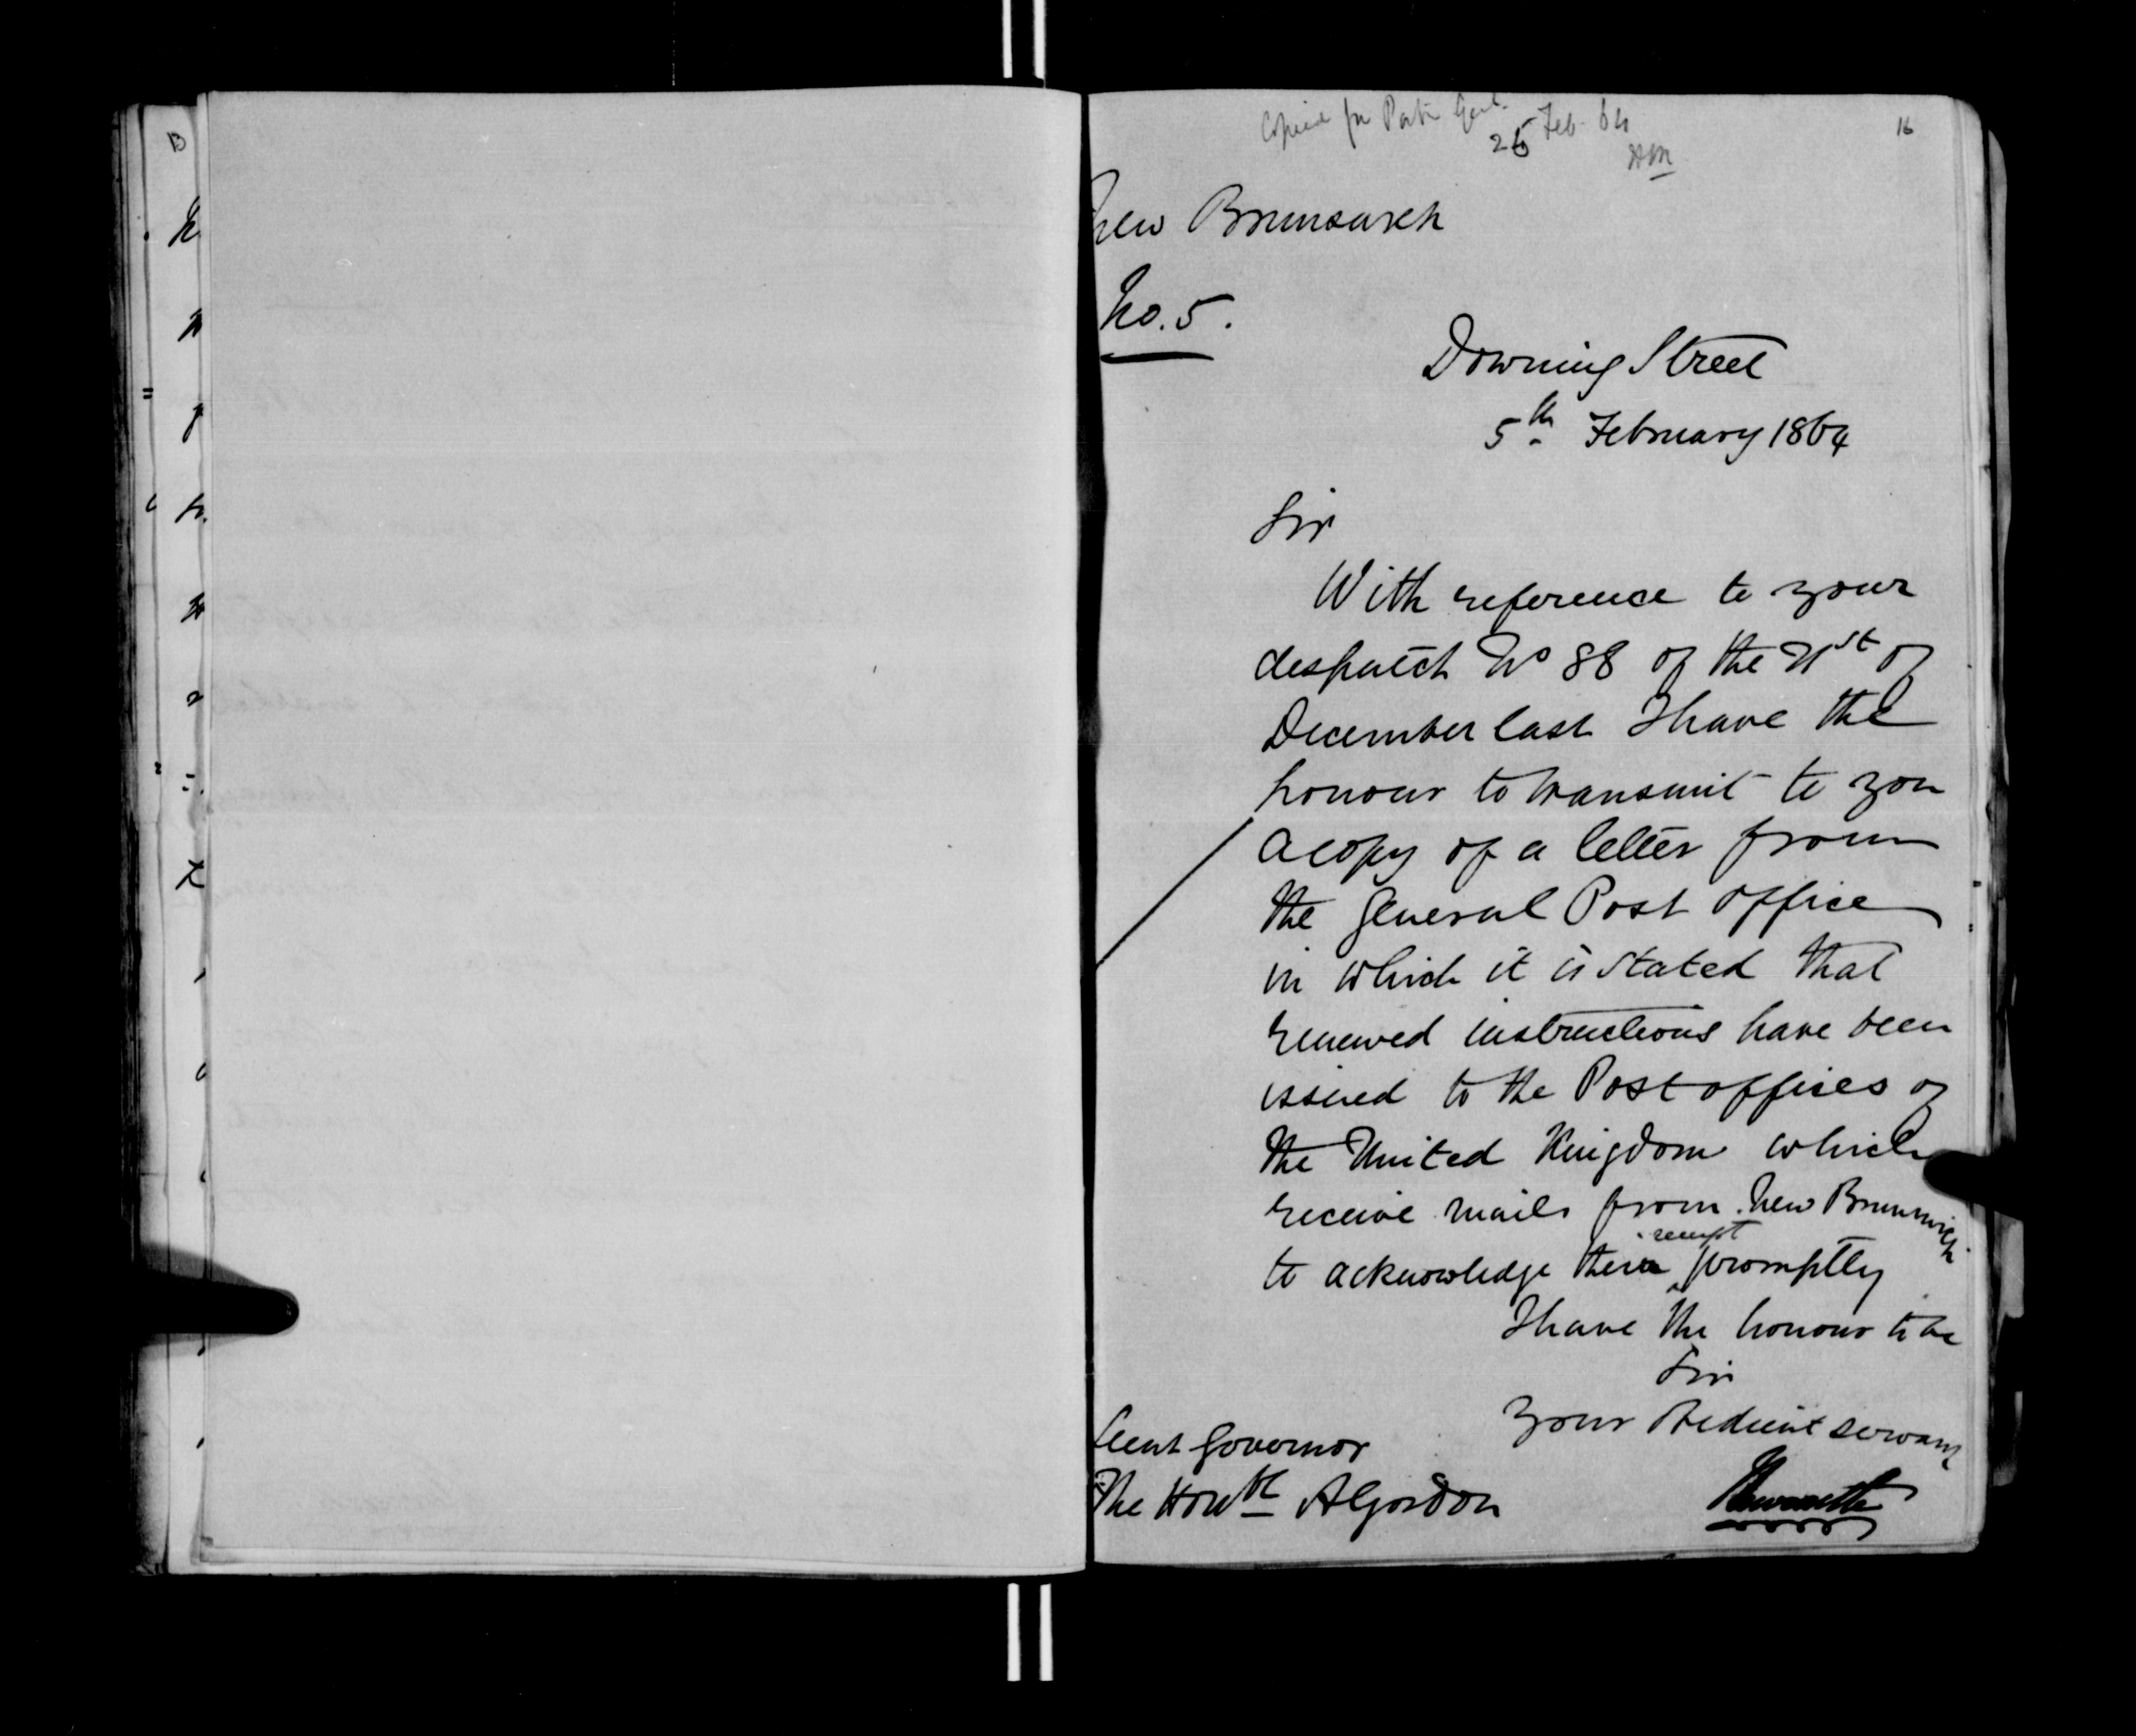 Copied for Post Genl.
25 Feb. 64
16
New Brunswick
No. 5.
Downing Street
5th February 1864
Sir
With reference to your
despatch No 88 of the 21st of
December last I have the
honour to transmit to you
a copy of a letter from
the General Post Office
in which it is stated that
renewed instructions have been
issued to the Post offices of
the United Kingdom which
receive mails from New Brunswick
to acknowledge their receipt promptly
I have the honour to be
Sir
Your Obedient servant
Newcastle
Lieut Governor
The Honble A Gordon